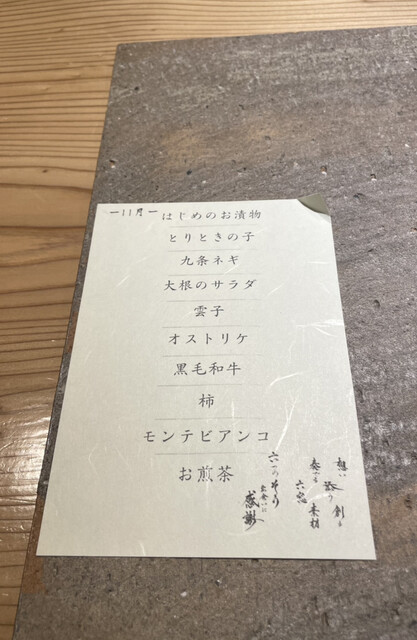 ー11月ー
はじめのお漬物
とりときの子
九条ネギ
大根のサラダ
雲子
オストリケ
黒毛和牛
柿
モンテビアンコ
お煎茶
想い
創る
六感
素材
感謝